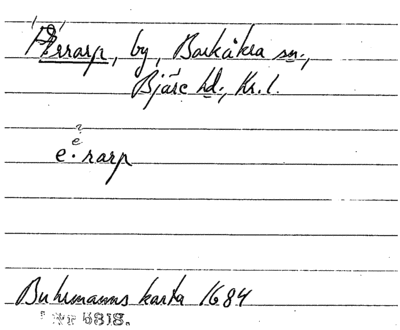 Ärrarp, by, Barkåkra sn.,
Bjäre hd., Kr. l.
e·rarp
Buhrmanns karta 1684